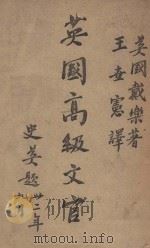 英國戴樂著
王世憲譯
英國高級文官
史英題
廿三年